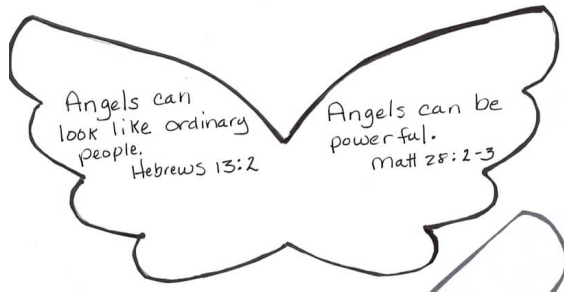 Angels can
look like ordinary
people.
Hebrews 13:2
Angels can be
powerful.
Matt 28:2-3